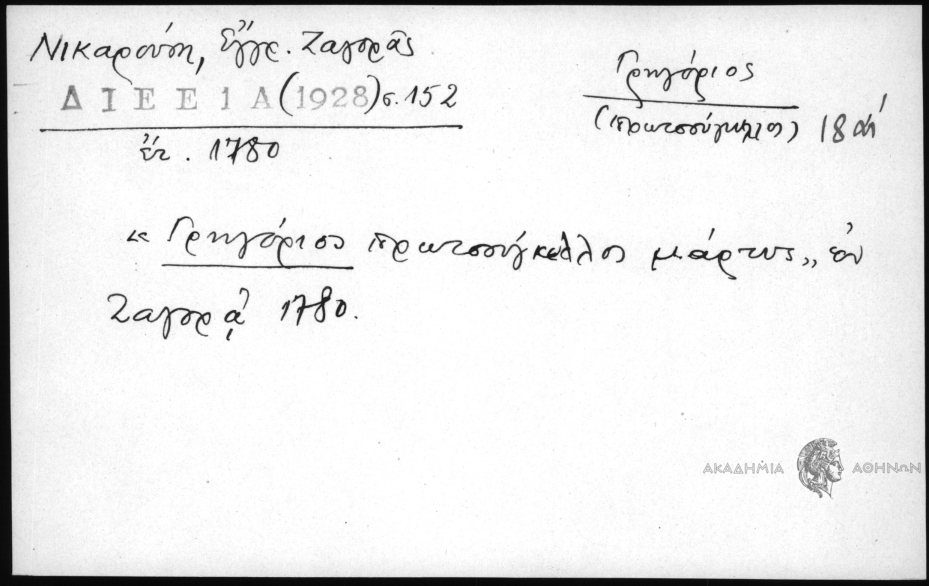 Νικαρούση, Ἔγγρ. Ζαγορᾶς
ΔΙΕΕ ΙΑ (1928) σ. 152
ἔτ. 1780
Γρηγόριος
(πρωτοσύγκελλος) 18
« Γρηγόριος πρωτοσύγκελλος μάρτυς,, ἐν
Ζαγορᾷ 1780.
ΑΚΑΔΗΜΙΑ ΑΘΗΝΩΝ